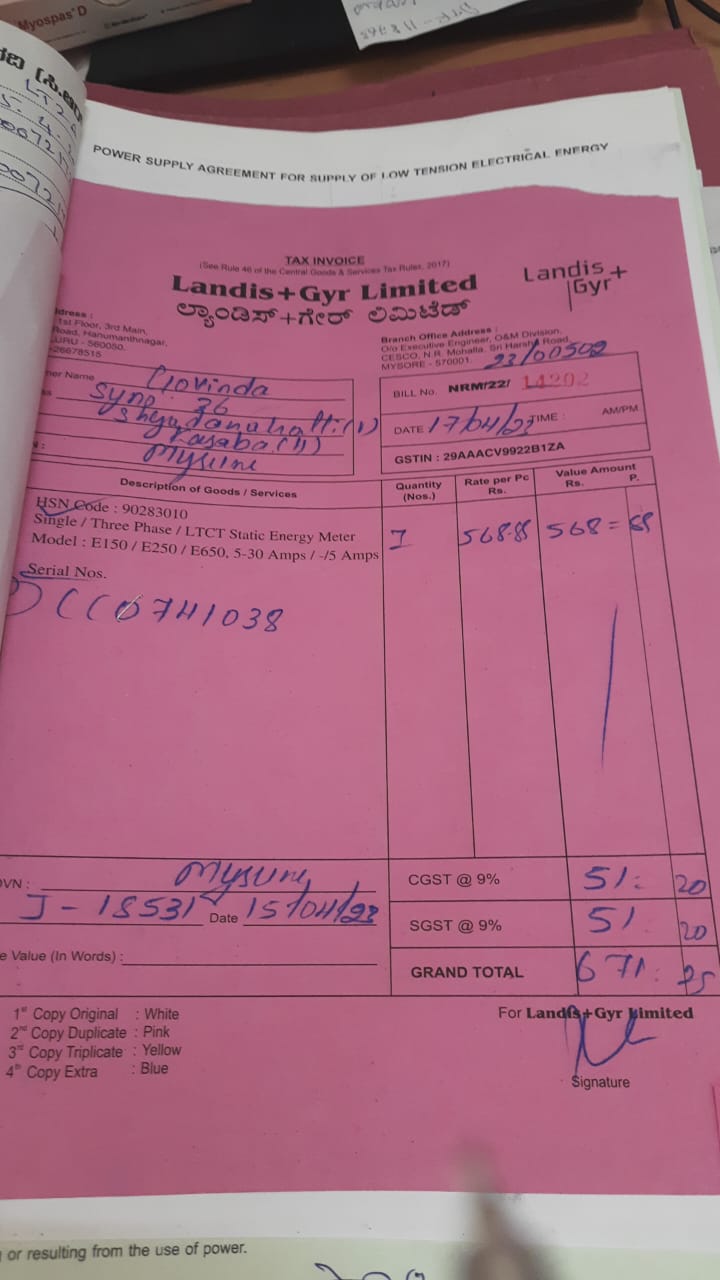 Myospas D
POWER SUPPLY AGREEMENT FOR SUPPLY OF LOW TENSION ELECTRICAL ENERGY
TAX INVOICE
(See Rule 46 of the Central Goods & Services Tax Rules, 2017)
Landis+Gyr Limited
ಲ್ಯಾಂಡಿಸ್+ಗೇರ್ ಲಿಮಿಟೆಡ್
Landis+
Gyr
dress :
1st Floor, 3rd Main,
Road, Hanumanthnagar,
URU - 560050.
26678515
Branch Office Address :
O/o Executive Engineer, O&M Division,
CESCO, N.R. Mohalla, Sri Harsha Road,
MYSORE - 570001.
23/00502
ner Name Govinda
ss Syno: 36
Shyadanahalli(v)
Kasaba(H)
Mysure
BILL No. NRM/22/ 14202
DATE 17/04/23 TIME : AM/PM
GSTIN : 29AAACV9922B1ZA
Description of Goods / Services
Quantity (Nos.)
Rate per Pc Rs.
Value Amount
Rs. P.
HSN Code : 90283010
Single / Three Phase / LTCT Static Energy Meter
Model : E150 / E250 / E650, 5-30 Amps / -/5 Amps
1 568.85 568=85
Serial Nos.
CC0741038
OVN : Mysure
J-18531 Date 15/04/23
e Value (In Words) :
CGST @ 9% 51: 20
SGST @ 9% 51 20
GRAND TOTAL 671: 25
1st Copy Original : White
2nd Copy Duplicate : Pink
3rd Copy Triplicate : Yellow
4th Copy Extra : Blue
For Landis+Gyr Limited
Signature
or resulting from the use of power.